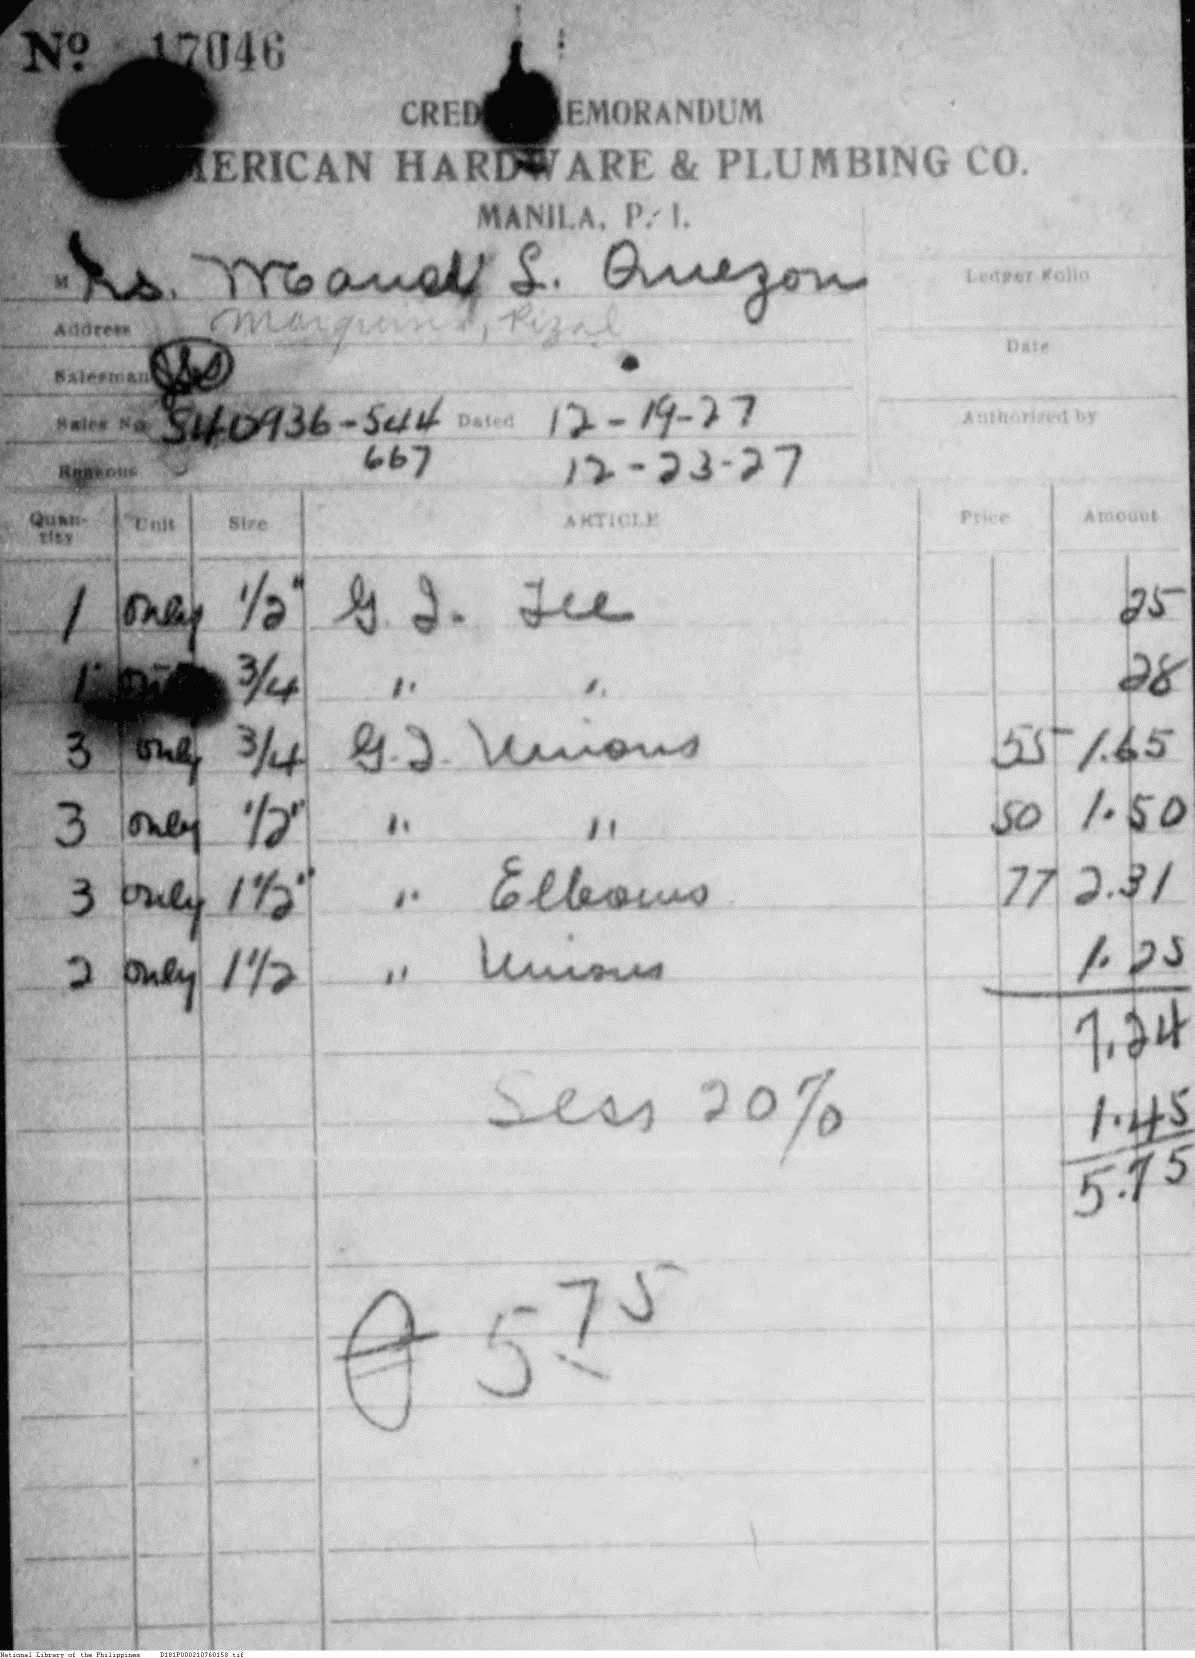 Nº 17046
CREDIT MEMORANDUM
AMERICAN HARDWARE & PLUMBING CO.
MANILA, P. I.
Mrs. Manuel L. Quezon
Ledger Folio
Address Mariquina, Rizal
Date
Salesman
Sales No. S40936-544 Dated 12-19-27
Authorized by
667 12-23-27
Reasons
Quantity Unit Size ARTICLE Price Amount
1 only 1/2" G. I. Tee 25
1 only 3/4 " " 28
3 only 3/4 G. I. Unions 55 1.65
3 only 1/2" " " 50 1.50
3 only 1 1/2" " Elbows 77 2.31
2 only 1 1/2 " Unions 1.25
7.24
Less 20% 1.45
5.75
₱ 5.75
National Library of the Philippines D181P000210760158.tif